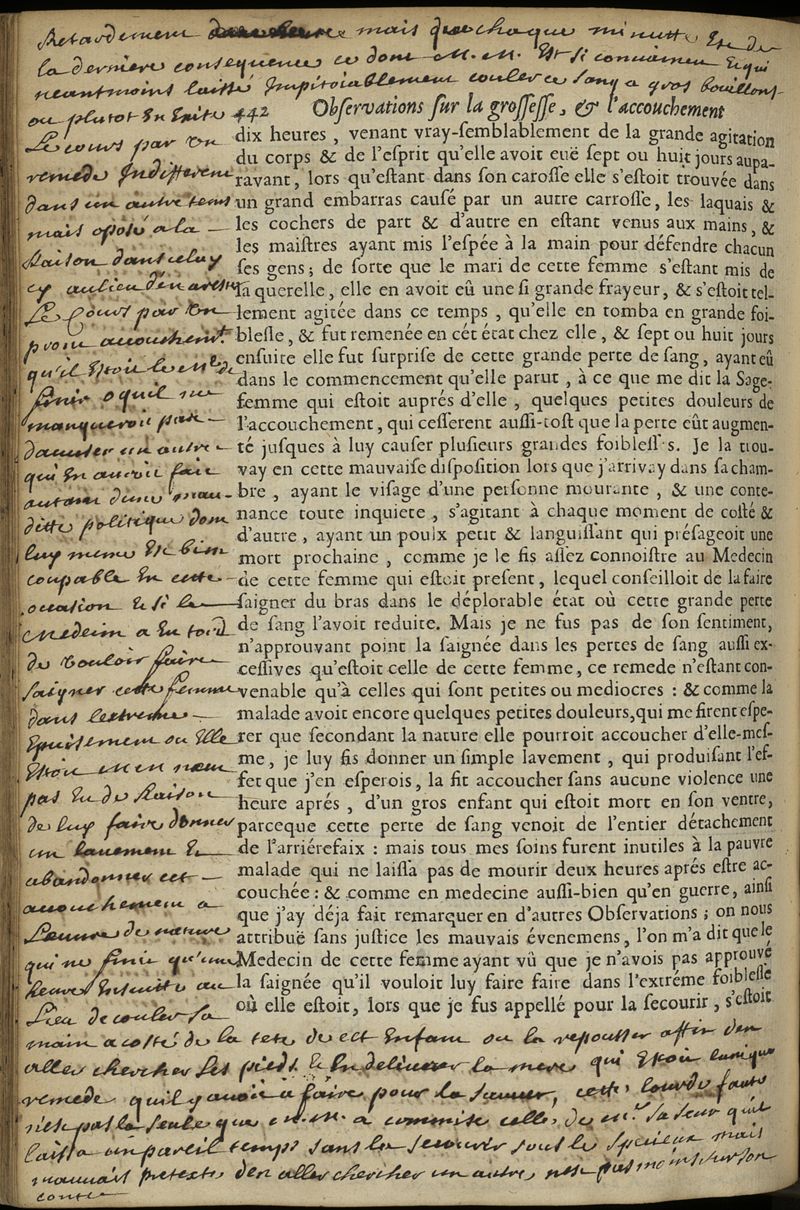 Retardement mais que chaque minutte Est de
la derniere consequence ce dont M. M. Est si convaincu Et qui
neantmoins laissé Impitoiablement couler ce sang a gros bouillons
ou plutot En Evite
442 Obſervations ſur la groſſeſſe, & l'accouchement
Le cours par Un
remede Indifferent
dans un autre tems
mais oposé a la
Raison dans celuy
cy au lieu d'en arester
Le Cours par Un
promt accouchemt.
qu'il Etoit le Me. de
finir o quil ne
manqueroit pas
daccuser un autre
qui En auroit fait
autant dune mau-
ditte politique dont
luy meme Est bien
coupable En cette
occasion Et si le
Medecin a Eu tord
de Vouloir faire
saigner cette femme
dans lextreme
Epuisement ou Elle
Etoit M. M. n'a
pas Eu de Raison
de luy faire donner
un lavement Et
abandonner cet
accouchement a
Leuvre de nature
qui ne finit qu'une
heure Ensuite au
Lieu de couler sa
dix heures, venant vray-ſemblablement de la grande agitation
du corps & de l'eſprit qu'elle avoit euë ſept ou huit jours aupa-
ravant, lors qu'eſtant dans ſon caroſſe elle s'eſtoit trouvée dans
un grand embarras cauſé par un autre carroſſe, les laquais &
les cochers de part & d'autre en eſtant venus aux mains, &
les maiſtres ayant mis l'eſpée à la main pour défendre chacun
ſes gens; de ſorte que le mari de cette femme s'eſtant mis de
ſa querelle, elle en avoit eû une ſi grande frayeur, & s'eſtoit tel-
lement agitée dans ce temps, qu'elle en tomba en grande foi-
bleſſe, & fut remenée en cét état chez elle, & ſept ou huit jours
enſuite elle fut ſurpriſe de cette grande perte de ſang, ayant eû
dans le commencement qu'elle parut, à ce que me dit la Sage-
femme qui eſtoit auprés d'elle, quelques petites douleurs de
l'accouchement, qui ceſſerent auſſi-toſt que la perte eût augmen-
té juſques à luy cauſer pluſieurs grandes foibleſſes. Je la trou-
vay en cette mauvaiſe diſpoſition lors que j'arrivay dans ſa cham-
bre, ayant le viſage d'une perſonne mourante, & une conte-
nance toute inquiete, s'agitant à chaque moment de coſté &
d'autre, ayant un poulx petit & languiſſant qui préſageoit une
mort prochaine, comme je le fis aſſez connoiſtre au Medecin
de cette femme qui eſtoit preſent, lequel conſeilloit de la faire
ſaigner du bras dans le déplorable état où cette grande perte
de ſang l'avoit reduite. Mais je ne fus pas de ſon ſentiment,
n'approuvant point la ſaignée dans les pertes de ſang auſſi ex-
ceſſives qu'eſtoit celle de cette femme, ce remede n'eſtant con-
venable qu'à celles qui ſont petites ou mediocres : & comme la
malade avoit encore quelques petites douleurs, qui me firent eſpe-
rer que ſecondant la nature elle pourroit accoucher d'elle-meſ-
me, je luy fis donner un ſimple lavement, qui produiſant l'ef-
fet que j'en eſperois, la fit accoucher ſans aucune violence une
heure aprés, d'un gros enfant qui eſtoit mort en ſon ventre,
parceque cette perte de ſang venoit de l'entier détachement
de l'arriérefaix : mais tous mes ſoins furent inutiles à la pauvre
malade qui ne laiſſa pas de mourir deux heures aprés eſtre ac-
couchée : & comme en medecine auſſi-bien qu'en guerre, ainſi
que j'ay déja fait remarquer en d'autres Obſervations; on nous
attribuë ſans juſtice les mauvais évenemens, l'on m'a dit que le
Medecin de cette femme ayant vû que je n'avois pas approuvé
la ſaignée qu'il vouloit luy faire faire dans l'extréme foibleſſe
où elle eſtoit, lors que je fus appellé pour la ſecourir, s'eſtoit
main a costé de la tete de cet Enfant ou la repousser affin den
aller chercher Les pieds Et En delivrer la mere qui Etoit lunique
remede quil y avoit a faire pour la sauver, cette lourde faute
n'est pas la seule que M. M. a commise celle de Me. sa seur quil
laissa un pareil temps sans la secourir sous le Specieux mais
mauvais pretexte d'en aller chercher un autre nest pas moins sur son
conte